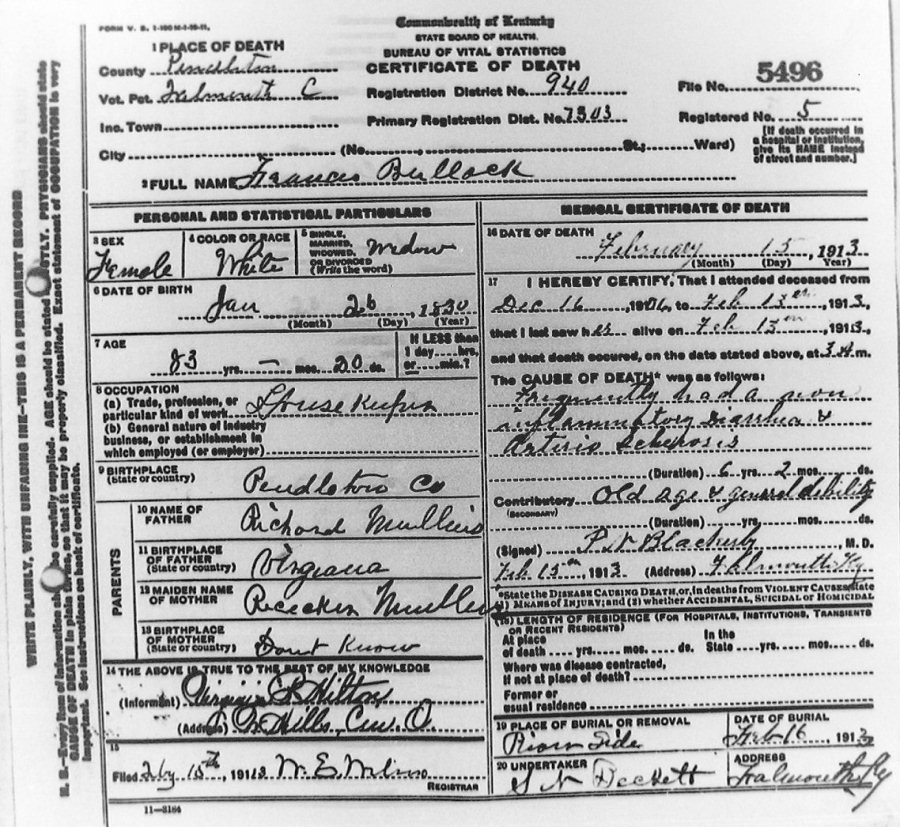 FORM V. S. 1-
Commonwealth of Kentucky
STATE BOARD OF HEALTH.
BUREAU OF VITAL STATISTICS
CERTIFICATE OF DEATH
1 PLACE OF DEATH
County Pendleton
Vot. Pct. Falmouth C
Inc. Town
City (No. St.; Ward)
Registration District No. 940
Primary Registration Dist. No. 7303
File No. 5496
Registered No. 5
[If death occurred in a hospital or institution, give its NAME instead of street and number.]
2 FULL NAME Francis Bullock
PERSONAL AND STATISTICAL PARTICULARS
3 SEX
Female
4 COLOR OR RACE
White
5 SINGLE, MARRIED, WIDOWED, OR DIVORCED (Write the word)
Widow
6 DATE OF BIRTH
Jan 26, 1830
(Month) (Day) (Year)
7 AGE
83 yrs. — mos. 20 ds.
If LESS than 1 day....hrs. or....min.?
8 OCCUPATION
(a) Trade, profession, or particular kind of work
(b) General nature of industry business, or establishment in which employed (or employer)
9 BIRTHPLACE (State or country)
Pendleton Co
PARENTS
10 NAME OF FATHER
Richard Mullins
11 BIRTHPLACE OF FATHER (State or country)
Virgiana
12 MAIDEN NAME OF MOTHER
Mullins
13 BIRTHPLACE OF MOTHER (State or country)
Dont Know
14 THE ABOVE IS TRUE TO THE BEST OF MY KNOWLEDGE
(Informant) Virginia Hilton
(Address) Hills, Cin. O.
15
Filed 15th, 1913
REGISTRAR
11—3184
MEDICAL CERTIFICATE OF DEATH
16 DATE OF DEATH
February 15, 1913
(Month) (Day) (Year)
17 I HEREBY CERTIFY, That I attended deceased from
Dec 16, 1906, to Feb 13, 1913,
that I last saw her alive on Feb 13, 1913,
and that death occured, on the date stated above, at 3 A m.
The CAUSE OF DEATH* was as follows:
Frequently had a non
inflammatory Diarrhea &
Arterio Sclerosis
(Duration) 6 yrs. 2 mos. ds.
Contributory Old age & general debility
(SECONDARY)
(Duration) yrs. mos. ds.
(Signed) P N Blackerby, M. D.
Feb 15, 1913 (Address) Falmouth Ky
*State the DISEASE CAUSING DEATH, or, in deaths from VIOLENT CAUSES, state
(1) MEANS OF INJURY; and (2) whether ACCIDENTAL, SUICIDAL or HOMICIDAL
18 LENGTH OF RESIDENCE (FOR HOSPITALS, INSTITUTIONS, TRANSIENTS OR RECENT RESIDENTS)
At place of death yrs. mos. ds. In the State yrs. mos. ds.
Where was disease contracted, If not at place of death?
Former or usual residence
19 PLACE OF BURIAL OR REMOVAL
River Side
DATE OF BURIAL
Feb 16, 1913
20 UNDERTAKER
ADDRESS
Falmouth Ky
WRITE PLAINLY, WITH UNFADING INK—THIS IS A PERMANENT RECORD
N. B.—Every item of information should be carefully supplied. AGE should be stated EXACTLY. PHYSICIANS should state
CAUSE OF DEATH in plain terms, so that it may be properly classified. Exact statement of OCCUPATION is very
important. See instructions on back of certificate.